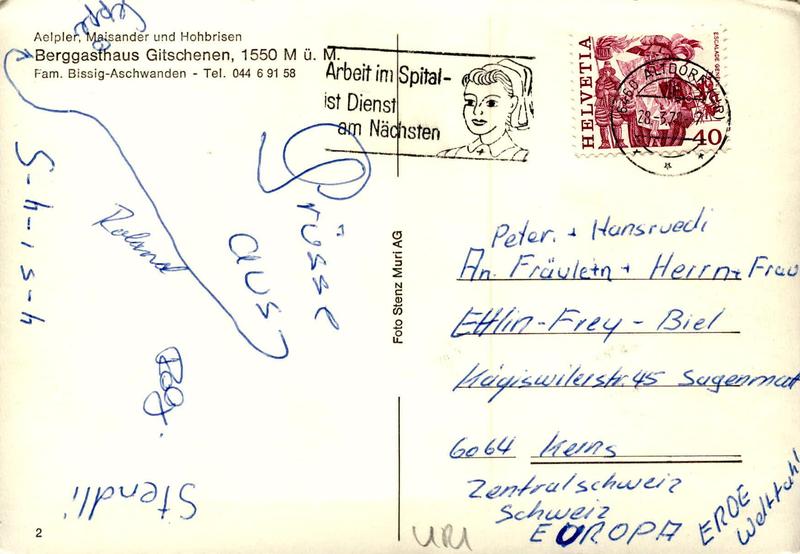 Aelpler, Maisander und Hohbrisen
Berggasthaus Gitschenen, 1550 M ü. M.
Fam. Bissig-Aschwanden - Tel. 044 6 91 58
Seppi
Grüsse
aus
Roland
S-4-1-S-4
Stendli
2
Foto Stenz Muri AG
Arbeit im Spital-
ist Dienst
am Nächsten
HELVETIA
40
6460 ALTDORF (UR)
Peter. + Hansruedi
An. Fräulein + Herrn + Frau
Ettlin-Frey-Biel
Kägiswilerstr. 45 Sagenmatt
6064 Kerns
Zentralschweiz
Schweiz
EUROPA
ERDE
Weltall
URI